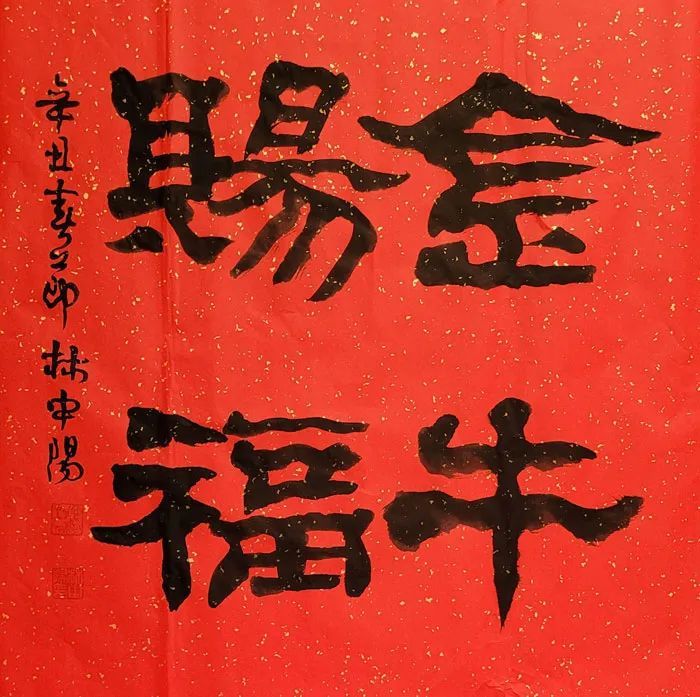 金牛
賜福
辛丑春節 林中陽